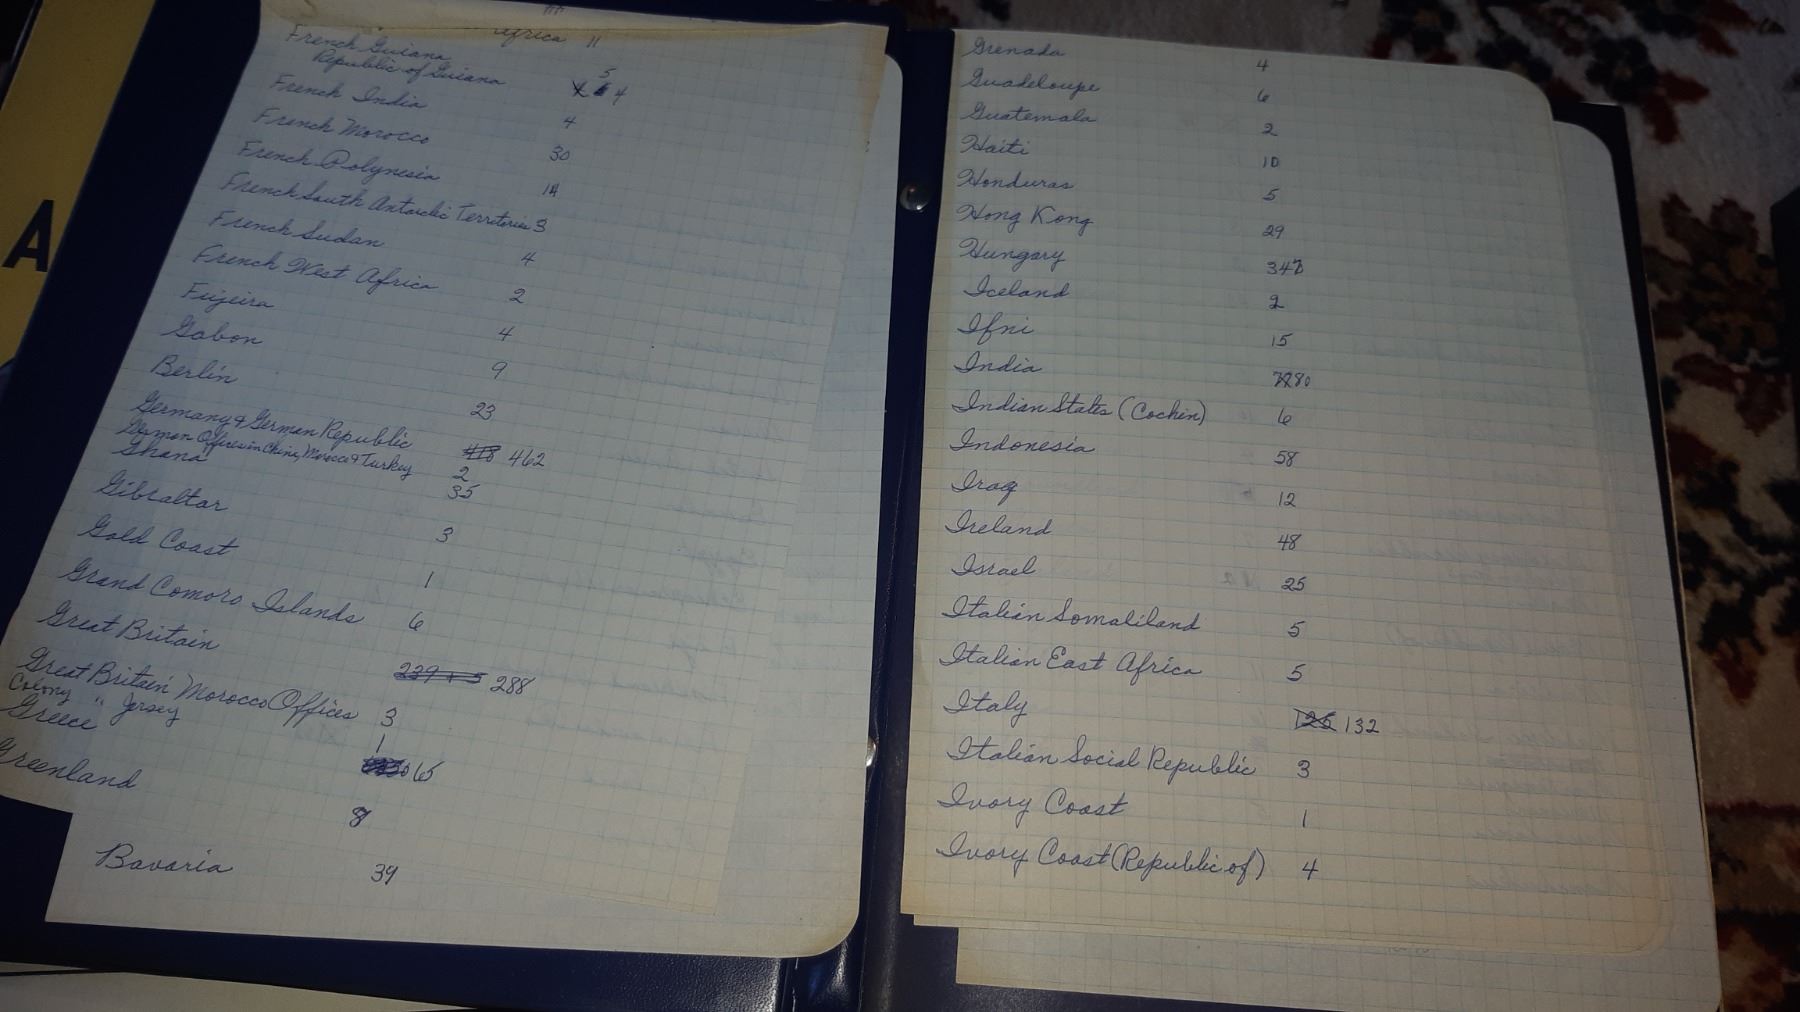 A
Africa 11
French Guiana
Republic of Guiana 5 4
French India 4
French Morocco 30
French Polynesia 14
French South Antarctic Territories 3
French Sudan 4
French West Africa 2
Fujeira 4
Gabon 9
Berlin 23
Germany & German Republic 418 462
German Offices in China, Morocco & Turkey 2
Ghana 35
Gibraltar 3
Gold Coast 1
Grand Comoro Islands 6
Great Britain 239 + 5 288
Great Britain Morocco Offices 3
Colony " Jersey 1
Greece 65
Greenland 8
Bavaria 39
Grenada 4
Guadeloupe 6
Guatemala 2
Haiti 10
Honduras 5
Hong Kong 29
Hungary 34
Iceland 2
Ifni 15
India 80
Indian States (Cochin) 6
Indonesia 58
Iraq 12
Ireland 48
Israel 25
Italian Somaliland 5
Italian East Africa 5
Italy 125 132
Italian Social Republic 3
Ivory Coast 1
Ivory Coast (Republic of) 4